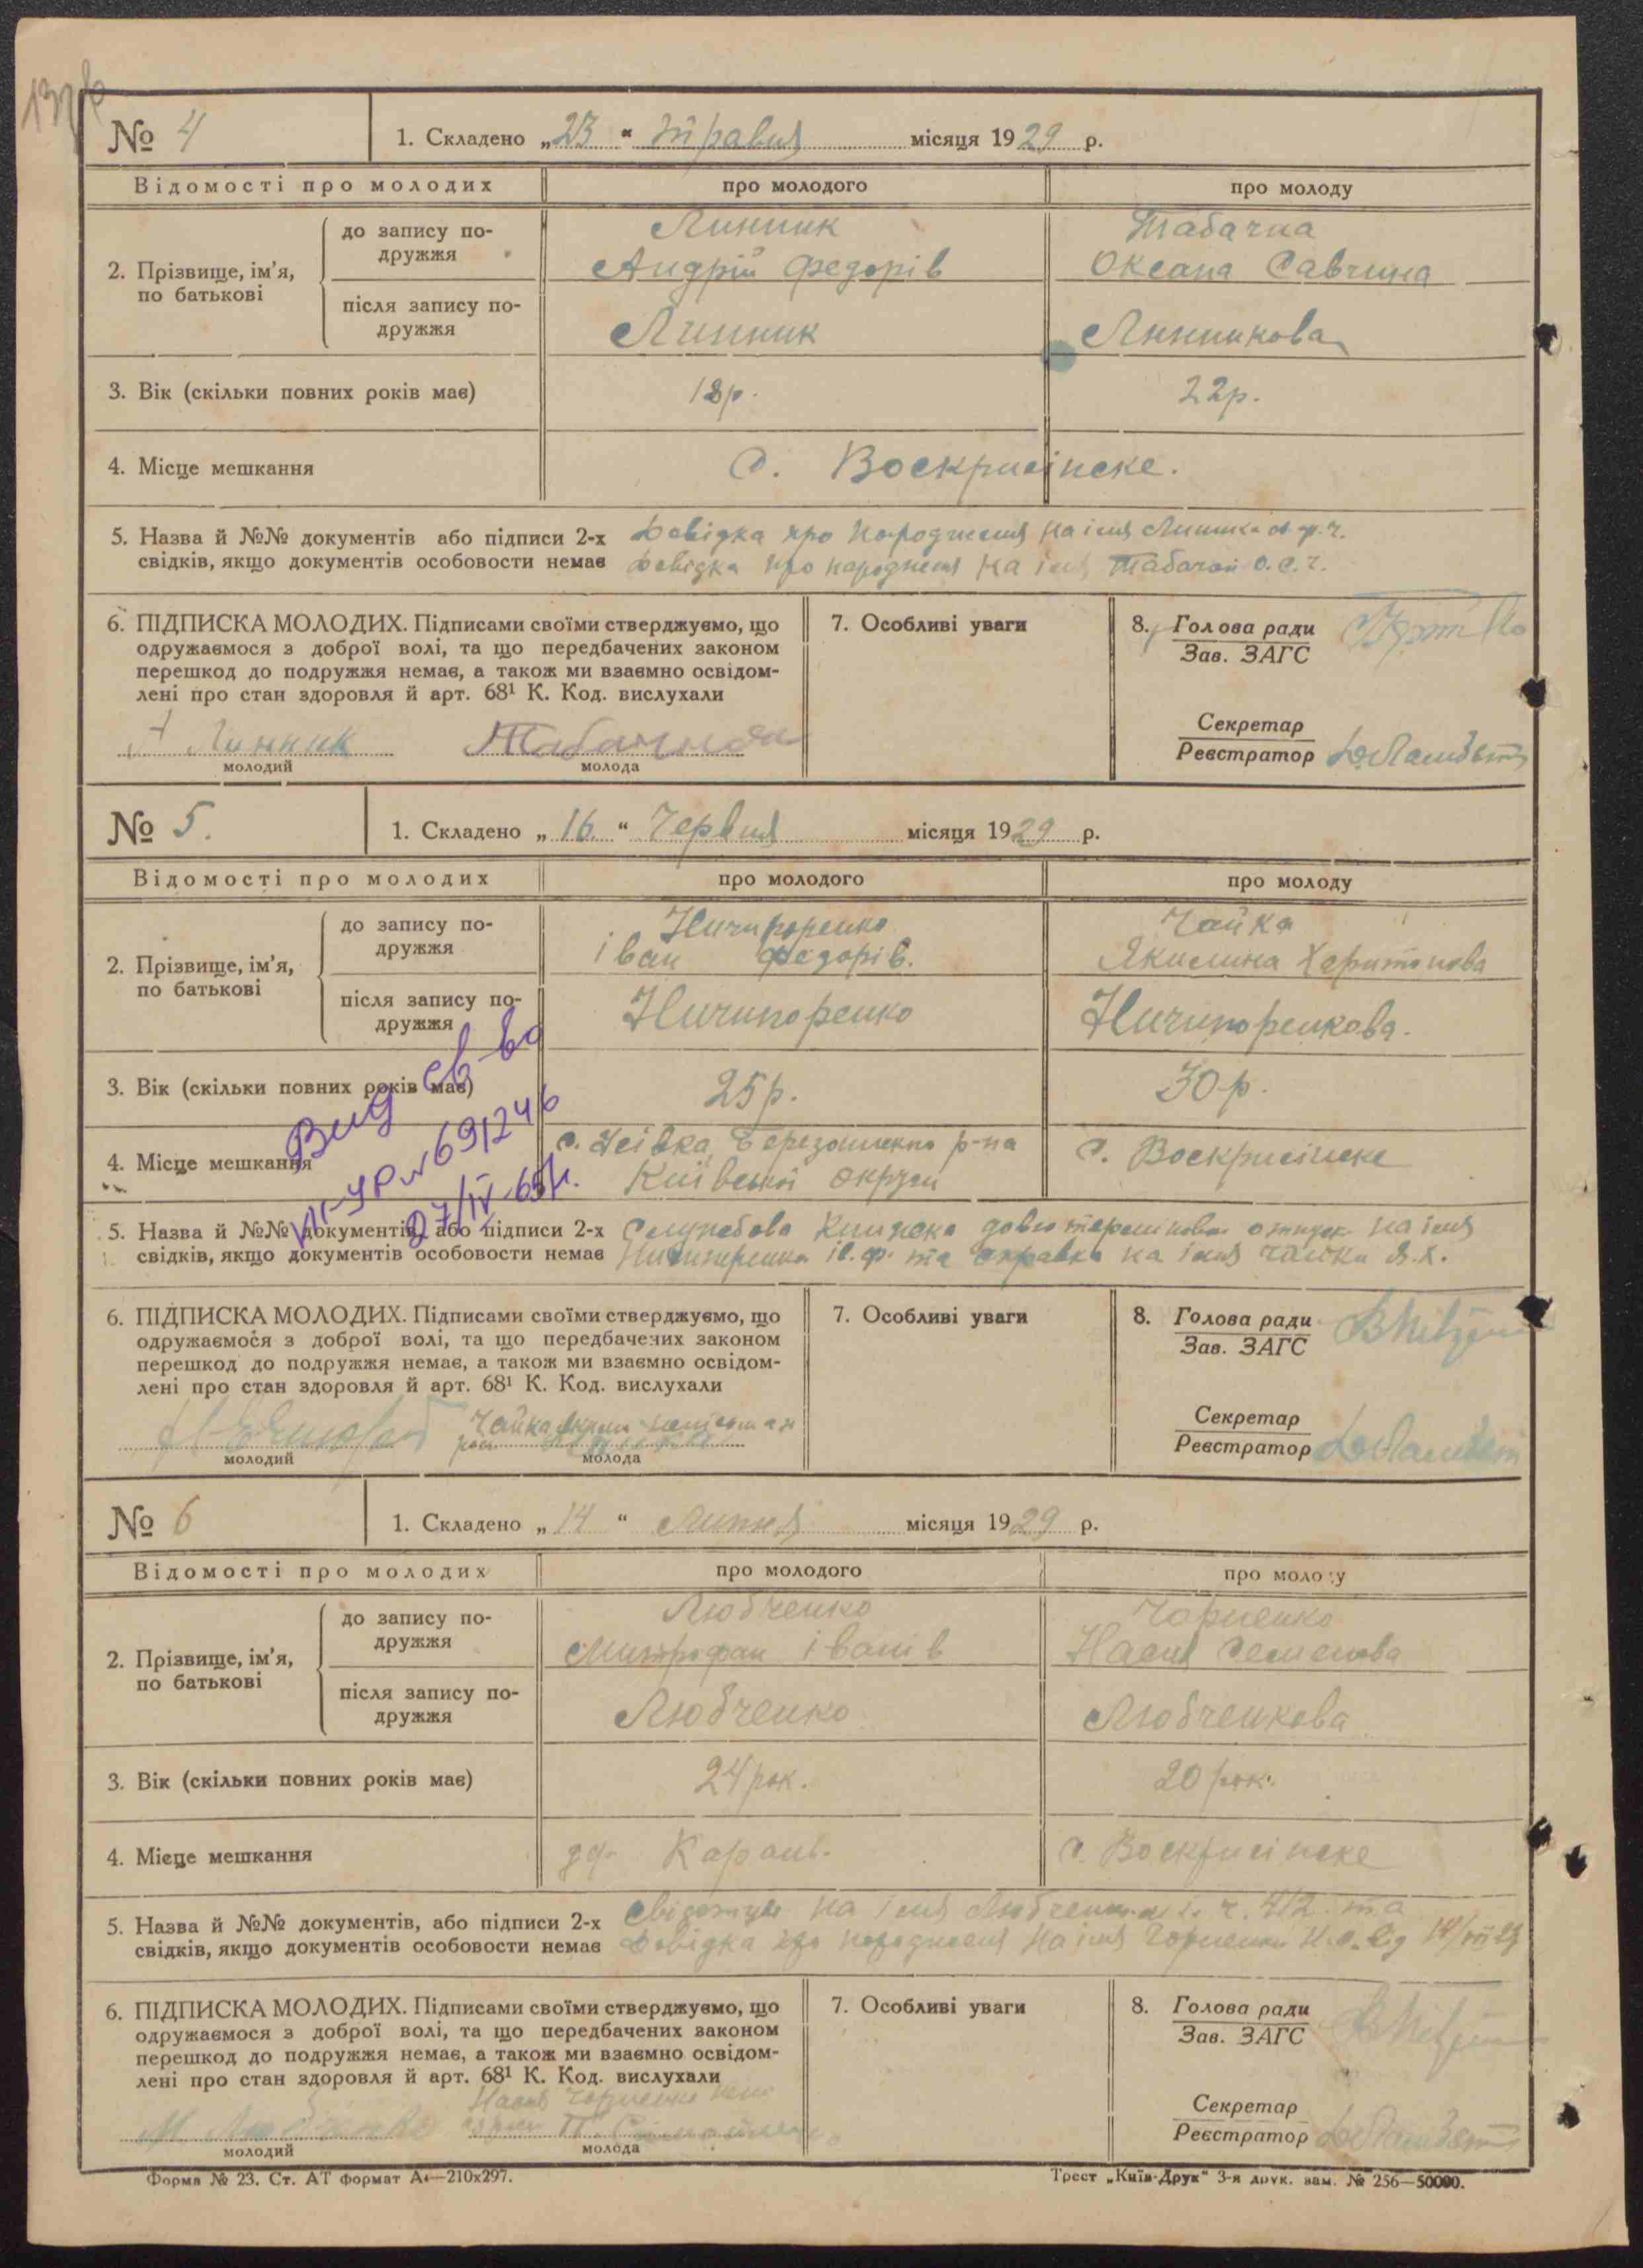 № 4
1. Складено „23“ травня місяця 1929 р.
Відомості про молодих про молодого про молоду
2. Прізвище, ім’я, по батькові
до запису подружжя
Линник Табачна
Андрій Федорів Оксана Савчина
після запису подружжя
Линник Линникова
3. Вік (скільки повних років має) 18р. 22р.
4. Місце мешкання с. Воскрисінске.
5. Назва й №№ документів або підписи 2-х Довідка про народження на імя Линника
свідків, якщо документів особовости немає Довідка про народження на імя Табачної О.С.
6. ПІДПИСКА МОЛОДИХ. Підписами своїми стверджуємо, що
одружаємося з доброї волі, та що передбачених законом
перешкод до подружжя немає, а також ми взаємно освідом-
лені про стан здоровля й арт. 68¹ К. Код. вислухали
А Линник
молодий молода
7. Особливі уваги
8. Голова ради
Зав. ЗАГС
Секретар
Реєстратор
№ 5.
1. Складено „16“ Червня місяця 1929 р.
Відомості про молодих про молодого про молоду
2. Прізвище, ім’я, по батькові
до запису подружжя
Ничипоренко Чайка
Іван Федорів. Якилина Харитонова
після запису подружжя
Ничипоренко Ничипоренкова.
3. Вік (скільки повних років має) 25р. 30р.
4. Місце мешкання
с. Усівка Березанського р-на
Київської округи
с. Воскрисінске
Вид св-во
УР № 691246
27/IV-65р.
5. Назва й №№ документів, або підписи 2-х Службова Книжка на імя
свідків, якщо документів особовости немає Ничипоренка Ів. Ф. та справка на імя Чайки Я.Х.
6. ПІДПИСКА МОЛОДИХ. Підписами своїми стверджуємо, що
одружаємося з доброї волі, та що передбачених законом
перешкод до подружжя немає, а також ми взаємно освідом-
лені про стан здоровля й арт. 68¹ К. Код. вислухали
Чайка
молодий молода
7. Особливі уваги
8. Голова ради
Зав. ЗАГС
Секретар
Реєстратор
№ 6
1. Складено „14“ Липня місяця 1929 р.
Відомості про молодих про молодого про молоду
2. Прізвище, ім’я, по батькові
до запису подружжя
Любченко Чорненко
Митрофан Іванів Насця Семенова
після запису подружжя
Любченко Любченкова
3. Вік (скільки повних років має) 24 рок. 20 рок.
4. Місце мешкання с. Воскрисінске
5. Назва й №№ документів, або підписи 2-х на імя Любченка ч. 412 та
свідків, якщо документів особовости немає Довідка про народження на імя Чорненко від 14/VII 29
6. ПІДПИСКА МОЛОДИХ. Підписами своїми стверджуємо, що
одружаємося з доброї волі, та що передбачених законом
перешкод до подружжя немає, а також ми взаємно освідом-
лені про стан здоровля й арт. 68¹ К. Код. вислухали
М Любченко
молодий молода
7. Особливі уваги
8. Голова ради
Зав. ЗАГС
Секретар
Реєстратор
Форма № 23. Ст. АТ формат А₄—210х297. Трест „Київ-Друк“ 3-я друк. зам. № 256—50000.